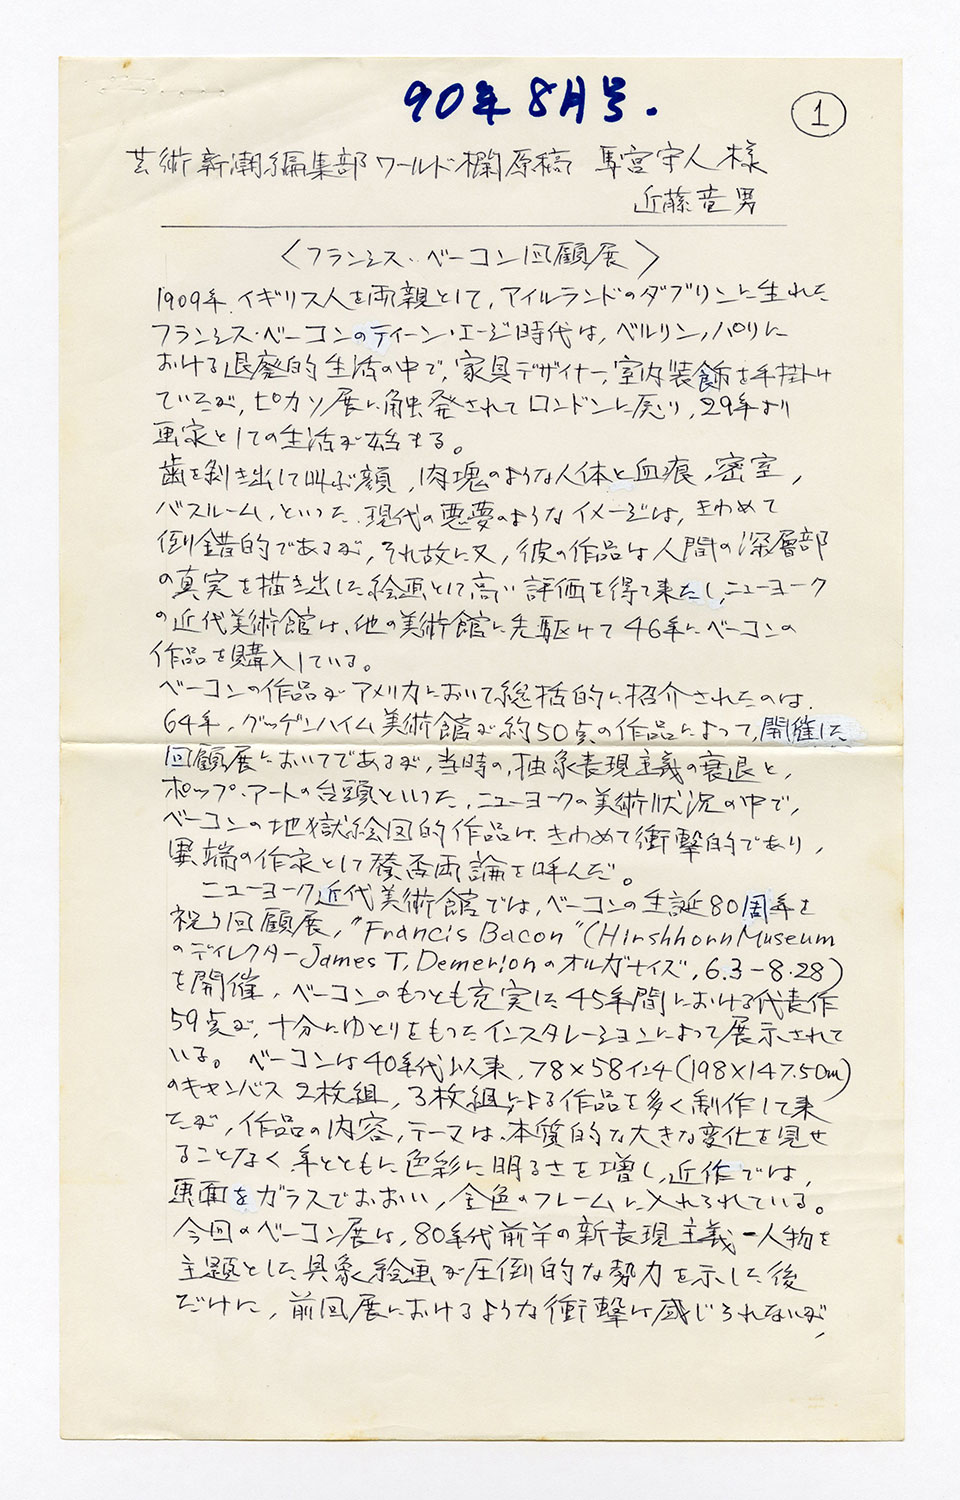 90年8月号.
①
芸術新潮編集部ワールド欄原稿 馬宮守人様
近藤竜男
〈フランシス・ベーコン回顧展〉
1909年、イギリス人を両親として、アイルランドのダブリンに生れた
フランシス・ベーコンのティーン・エージ時代は、ベルリン、パリに
おける退廃的生活の中で、家具デザイナー、室内装飾を手掛け
ていたが、ピカソ展に触発されてロンドンに戻り、29年より
画家としての生活が始まる。
歯を剥き出して叫ぶ顔、肉塊のような人体と血痕、密室、
バスルーム、といった、現代の悪夢のようなイメージは、きわめて
倒錯的であるが、それ故に又、彼の作品は人間の深層部
の真実を描き出した絵画として高い評価を得て来たし、ニューヨーク
の近代美術館は、他の美術館に先駆けて46年にベーコンの
作品を購入している。
ベーコンの作品がアメリカにおいて総括的に紹介されたのは、
64年、グッゲンハイム美術館が約50点の作品によって、開催した
回顧展においてであるが、当時の、抽象表現主義の衰退と、
ポップ・アートの台頭といった、ニューヨークの美術状況の中で、
ベーコンの地獄絵図的作品は、きわめて衝撃的であり、
異端の作家として賛否両論を呼んだ。
ニューヨーク近代美術館では、ベーコンの生誕80周年を
祝う回顧展、"Francis Bacon"(Hirshhorn Museum
のディレクターJames T. Demetionのオルガナイズ、6.3-8.28)
を開催、ベーコンのもっとも充実した45年間における代表作
59点が、十分にゆとりをもったインスタレーションによって展示されて
いる。ベーコンは40年代以来、78×58インチ(198×147.50cm)
のキャンバス2枚組、3枚組による作品を多く制作して来
たが、作品の内容、テーマは、本質的な大きな変化を見せ
ることなく、年とともに色彩に明るさを増し、近作では、
画面をガラスでおおい、金色のフレームに入れられている。
今回のベーコン展は、80年代前半の新表現主義-人物を
主題とした具象絵画が圧倒的な勢力を示した後
だけに、前回展におけるような衝撃は感じられないが、